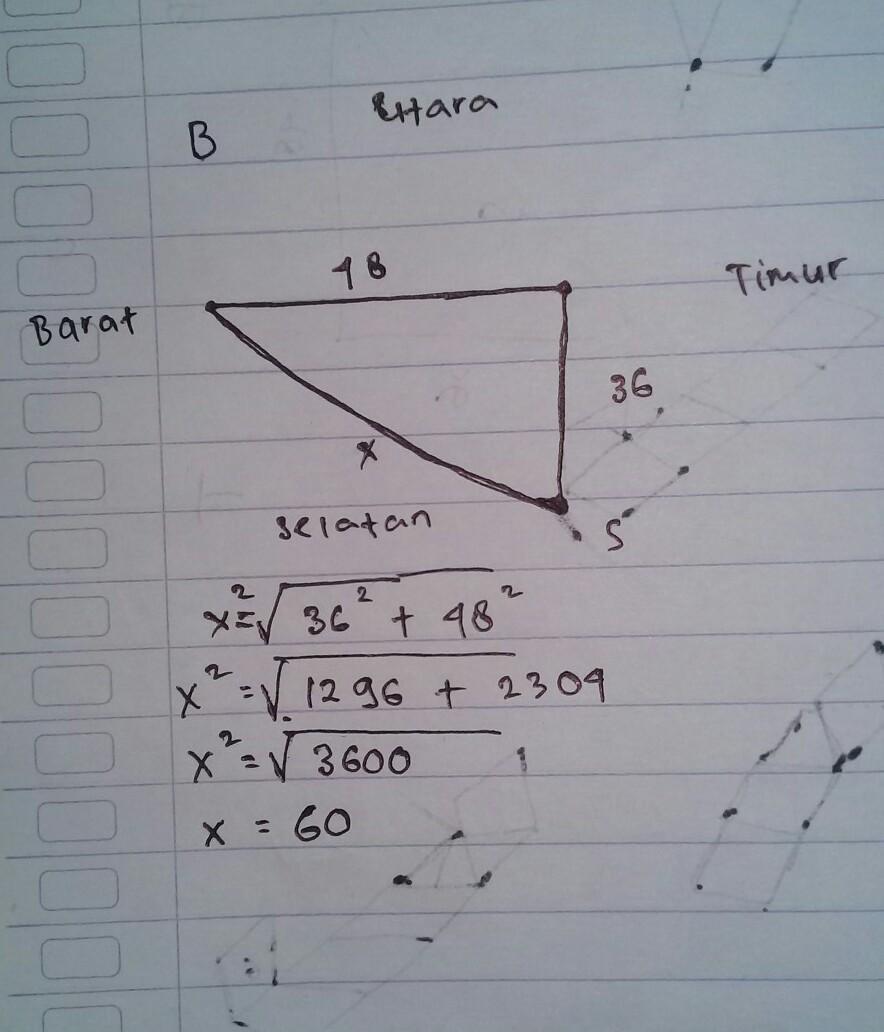 Utara
B
48
Timur
Barat
36
x
Selatan
S
x²=√36² + 48²
x²=√1296 + 2304
x²=√3600
x = 60